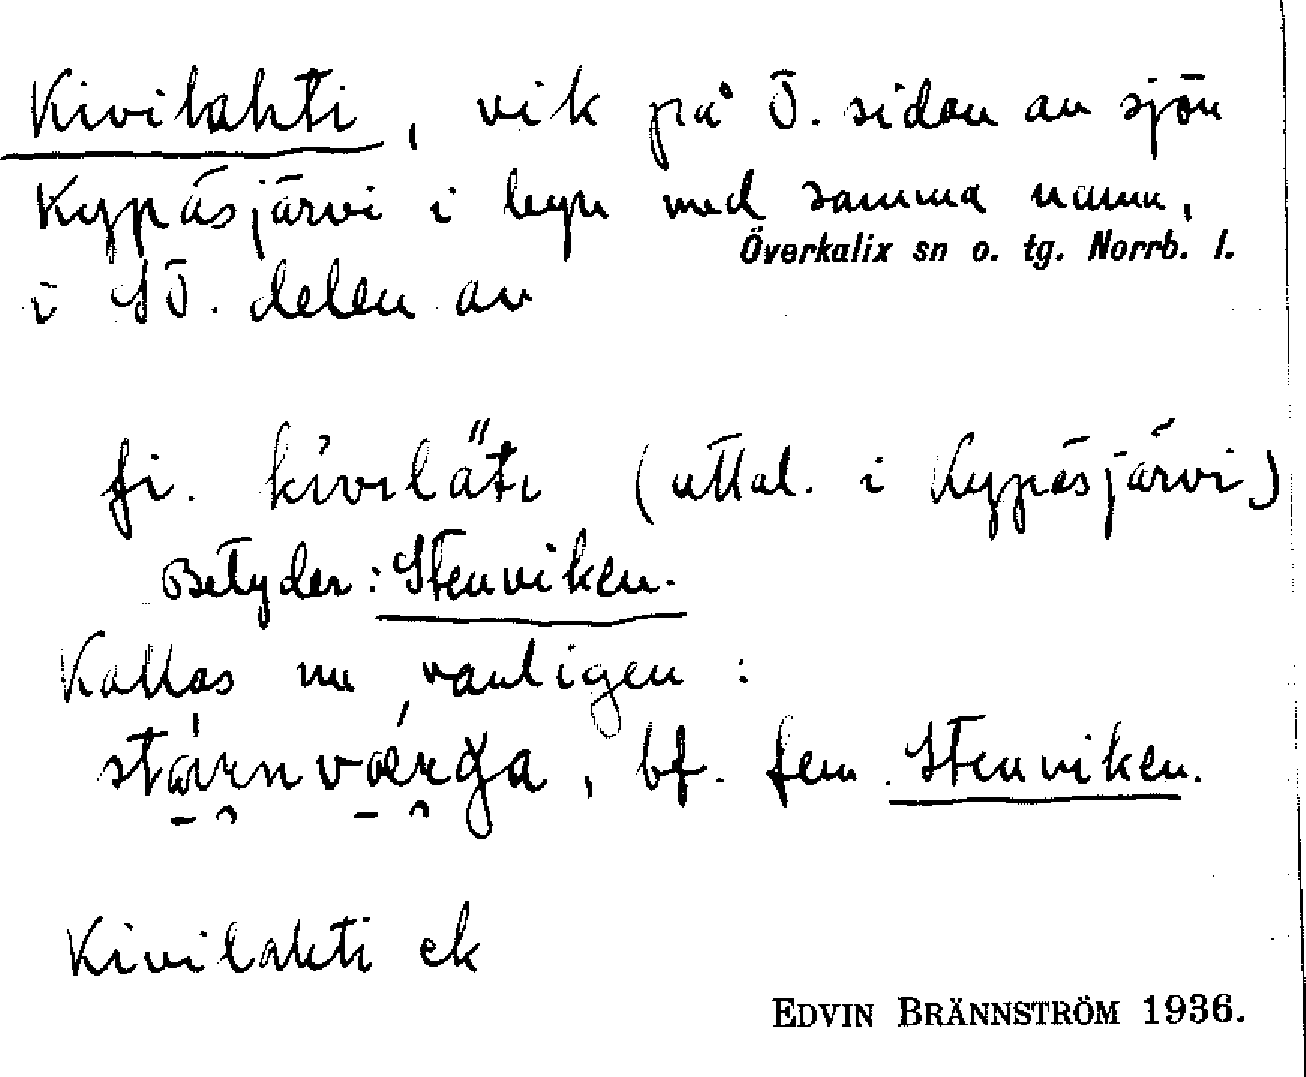 Kivilahti, vik på Ö. sidan av sjön
Kypäsjärvi i byn med samma namn,
i SÖ. delen av Överkalix sn o. tg. Norrb. l.
fi. (uttal. i Kypäsjärvi)
Betyder: Stenviken.
Kallas nu vanligen :
, bf. fem. Stenviken.
Kivilahti ek
EDVIN BRÄNNSTRÖM 1936.